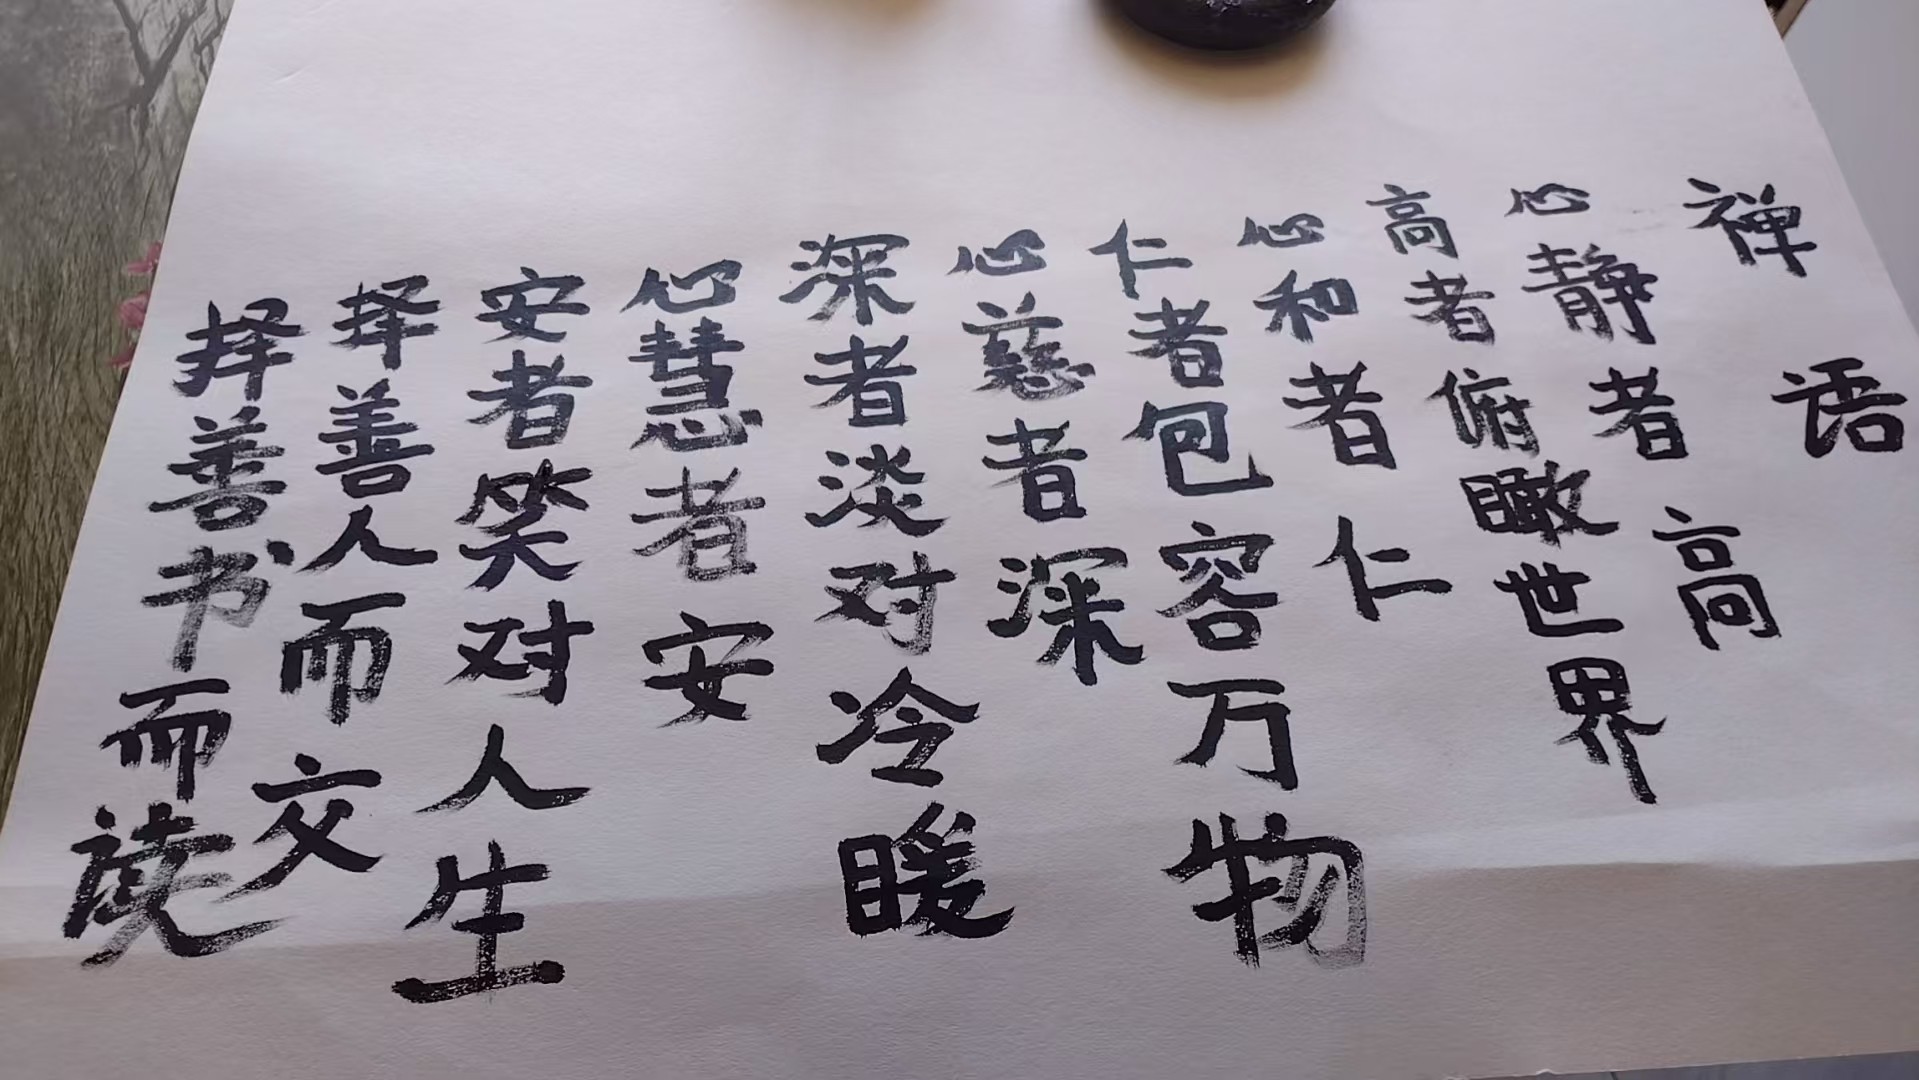 禅语
心静者高
高者俯瞰世界
心和者仁
仁者包容万物
心慈者深
深者淡对冷暖
心慧者安
安者笑对人生
择善人而交
择善书而读